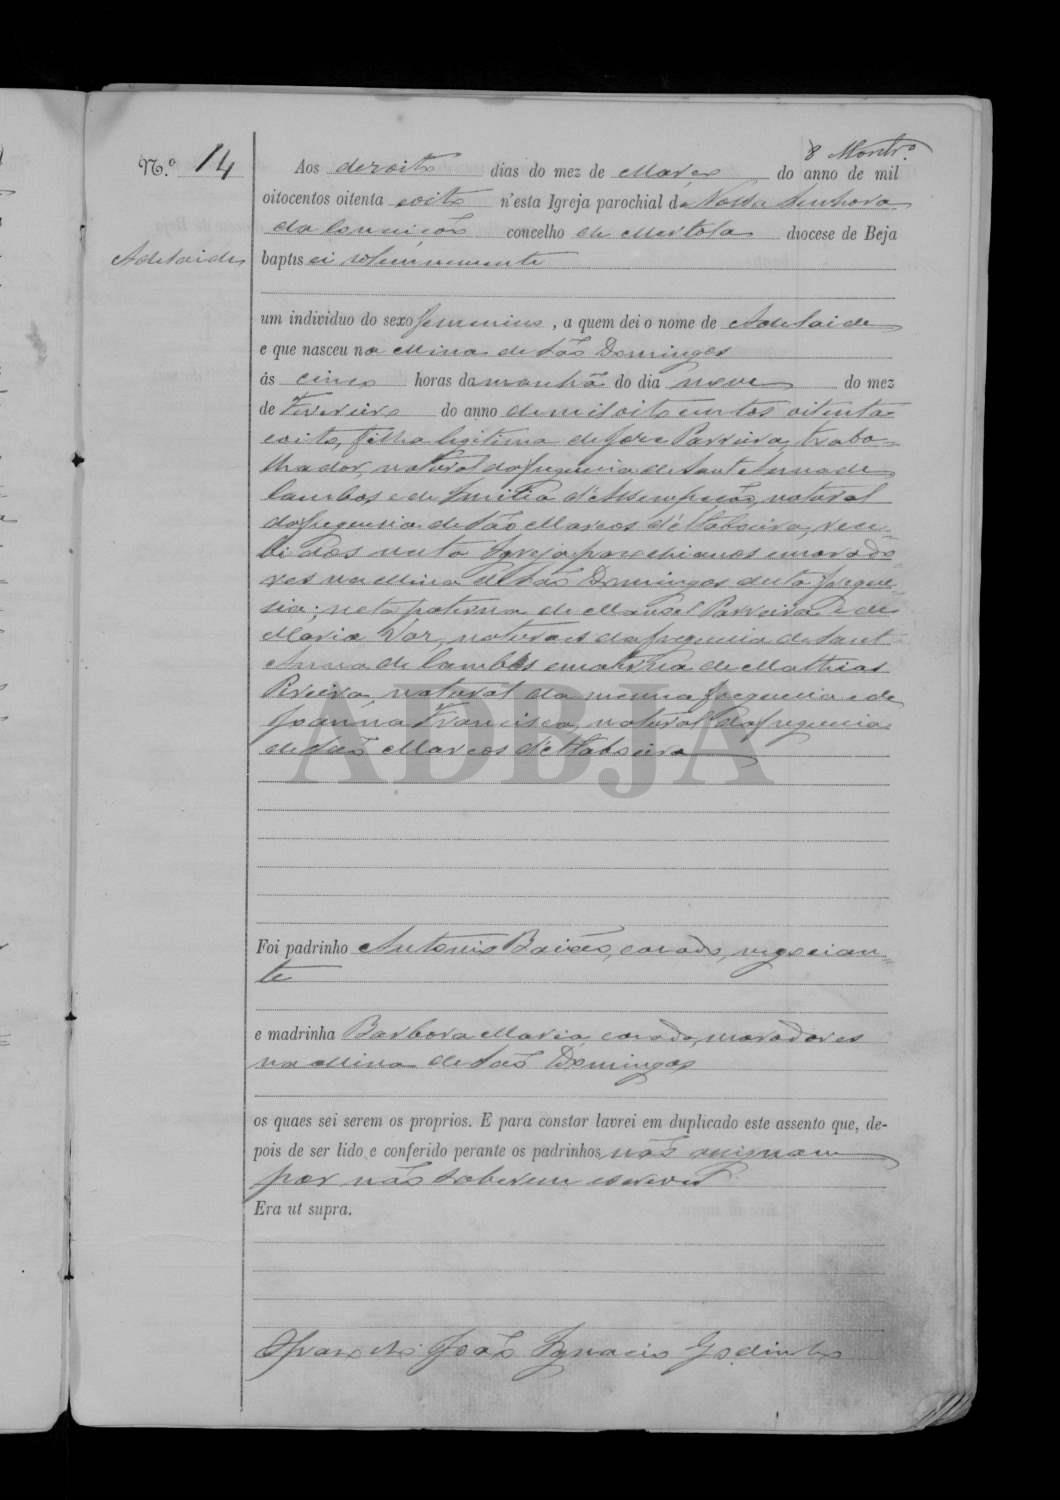 8 Montro.
N.º 14
Aos dezoito dias do mez de Março do anno de mil
oitocentos oitenta eoito n'esta Igreja parochial de Nossa Senhora
da Conceição concelho de Mertola diocese de Beja
Adelaide
baptisei solemnemente
um individuo do sexo femenino, a quem dei o nome de Adelaide
e que nasceu na Mina de São Domingos
ás cinco horas da manhã do dia nove do mez
de Fevereiro do anno de mil oito centos oitenta
eoito, filha legitima de José Parreira, traba=
lhador, natural da freguesia de Sant'Anna de
Cambas, e de Emilia d'Assumpção, natural
da freguesia de São Marcos d'Ataboeira, rece=
bidos nesta Igreja parochianos e morado=
res na Mina de São Domingos desta fregue=
sia; neta paterna de Manoel Parreira e de
Maria Vaz, naturaes da freguesia de Sant'
Anna de Cambas e materna de Mathias
Pereira, natural da mesma freguesia e de
Joanna Francisca, natural da freguesia
de São Marcos d'Ataboeira
ADBJA
Foi padrinho Antonio Baião, casado, negocian=
te
e madrinha Barbora Maria, casada, moradores
na Mina de São Domingos
os quaes sei serem os proprios. E para constar lavrei em duplicado este assento que, de-
pois de ser lido e conferido perante os padrinhos não assignam
por não saberem escrever
Era ut supra.
O parocho João Ignacio Godinho